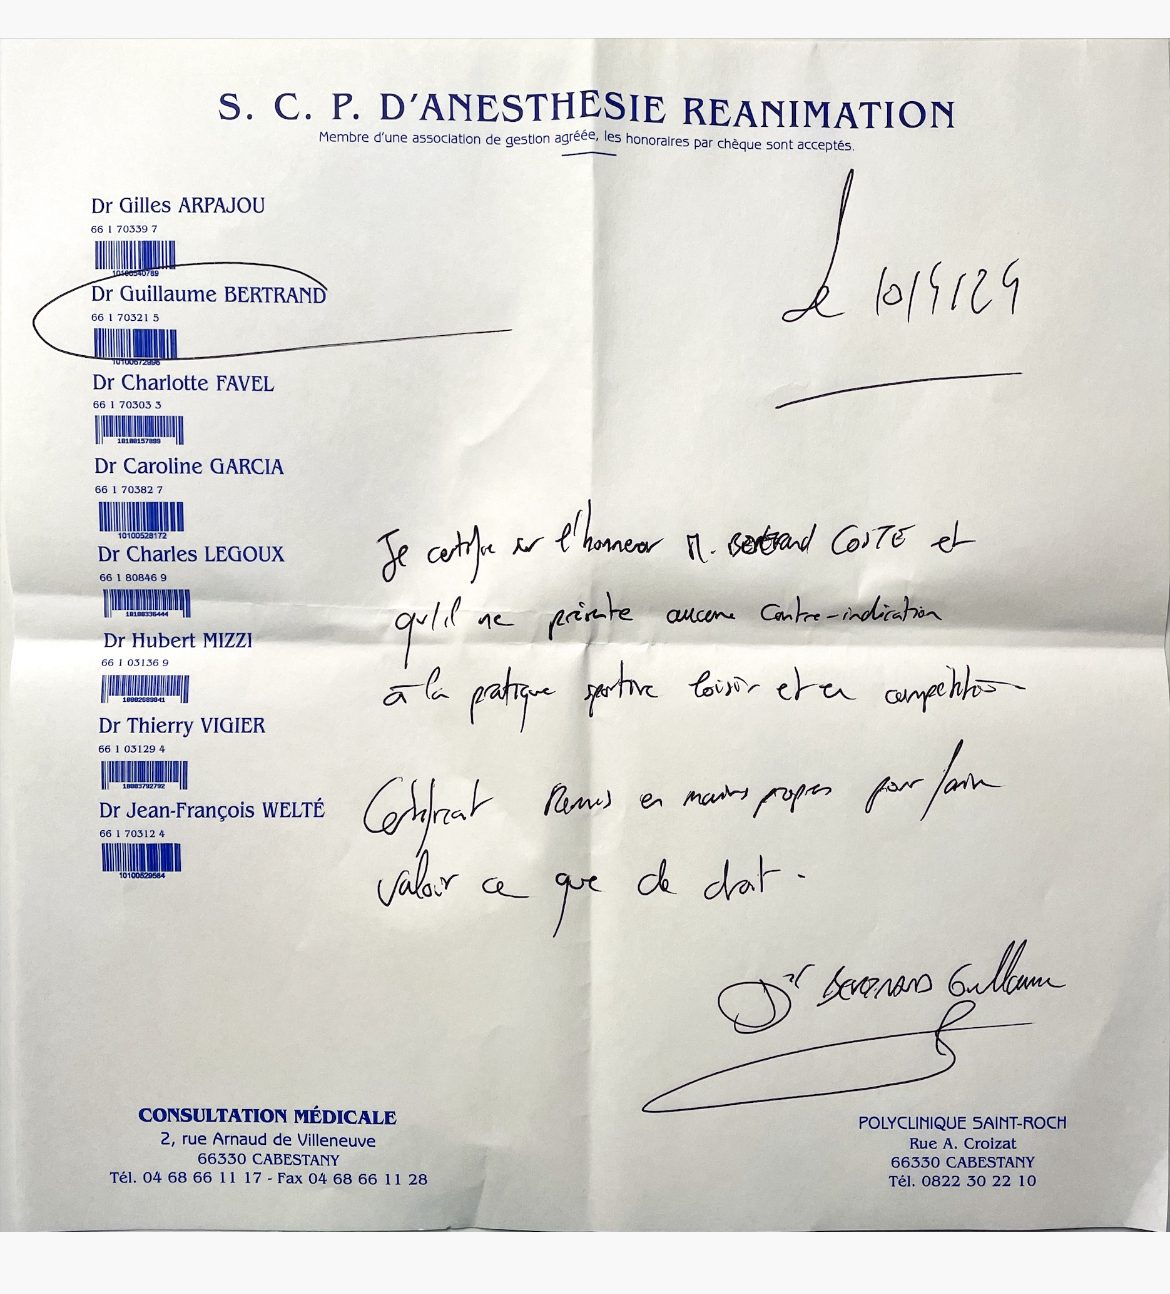 S. C. P. D'ANESTHESIE REANIMATION
Membre d'une association de gestion agréée, les honoraires par chèque sont acceptés.
Dr Gilles ARPAJOU
66 1 70339 7
10100540789
Le 10/4/24
Dr Guillaume BERTRAND
66 1 70321 5
10100672996
Dr Charlotte FAVEL
66 1 70303 3
10100157889
Dr Caroline GARCIA
66 1 70382 7
10100528172
Dr Charles LEGOUX
66 1 80846 9
10100336444
Dr Hubert MIZZI
66 1 03136 9
Dr Thierry VIGIER
66 1 03129 4
10003792792
Dr Jean-François WELTÉ
66 1 70312 4
10100529564
Je certifie sur l'honneur M. Bertrand COSTE et
qu'il ne présente aucune contre-indication
à la pratique sportive loisir et en compétition
Certificat Remis en mains propres pour faire
valoir ce que de droit.
Dr BERTRAND Guillaume
CONSULTATION MÉDICALE
2, rue Arnaud de Villeneuve
66330 CABESTANY
Tél. 04 68 66 11 17 - Fax 04 68 66 11 28
POLYCLINIQUE SAINT-ROCH
Rue A. Croizat
66330 CABESTANY
Tél. 0822 30 22 10